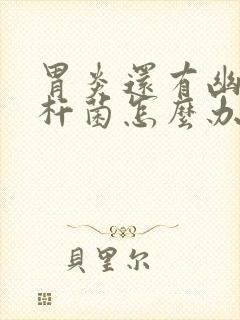 胃炎還有幽
杆菌怎麼办
貝里尔